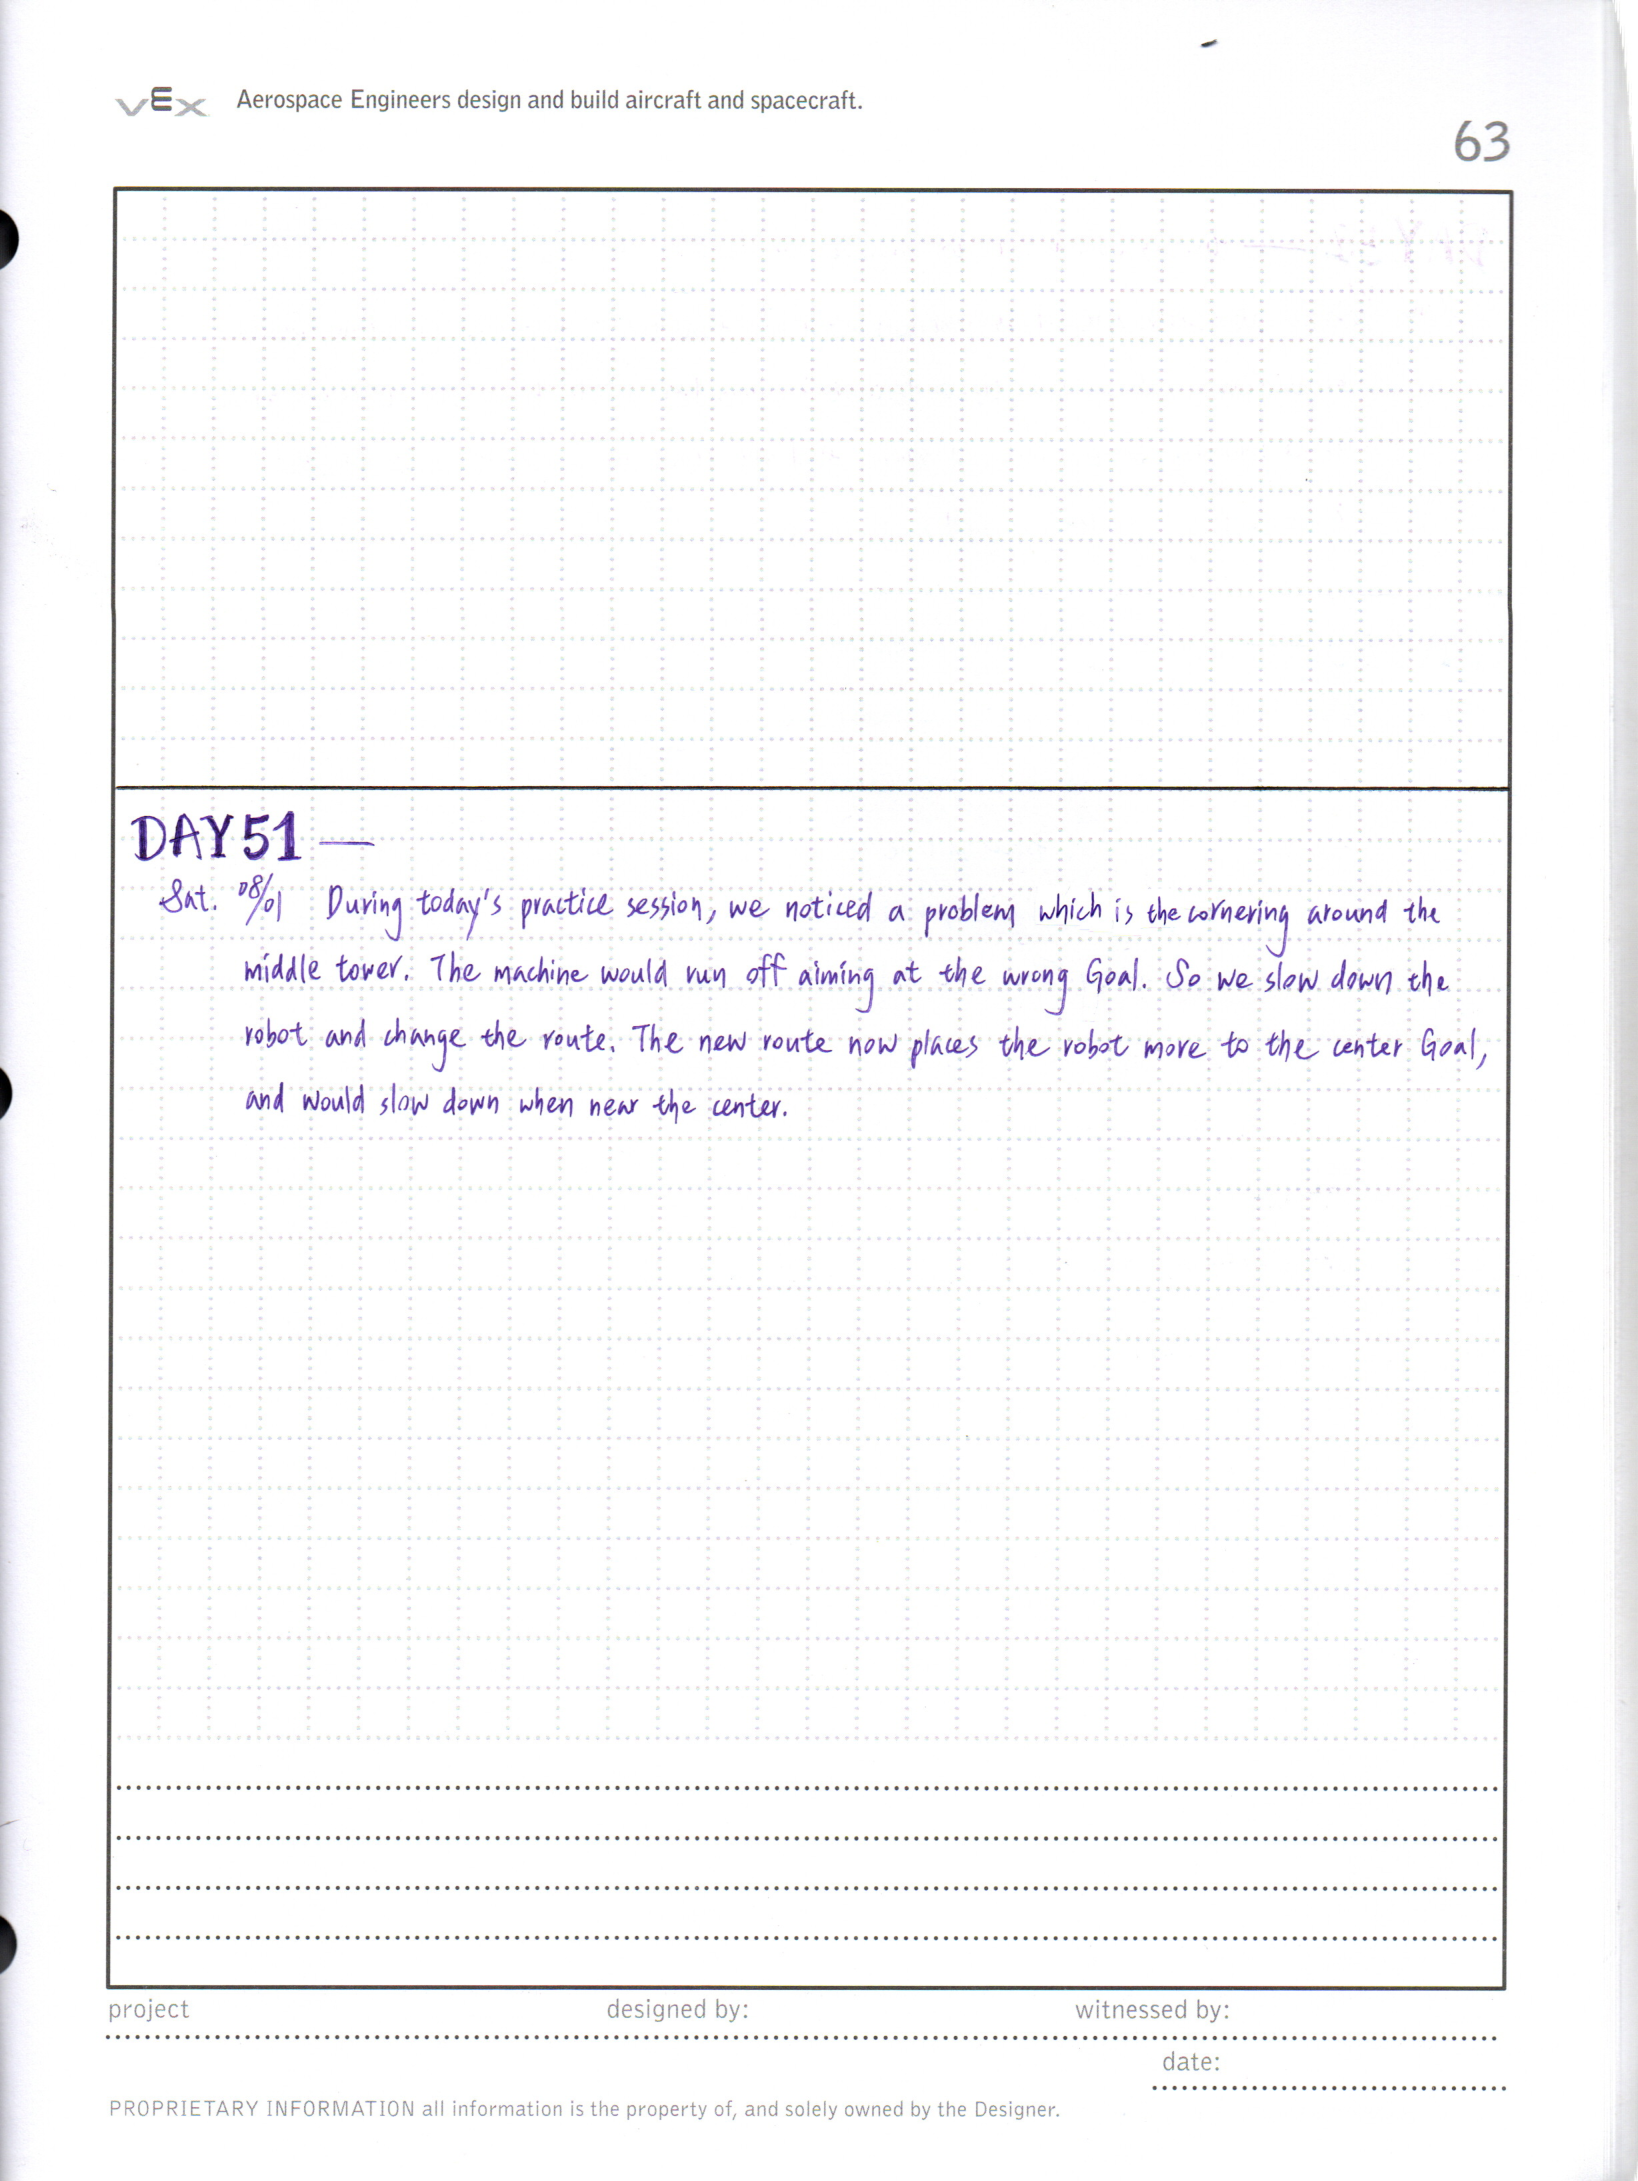 vEx Aerospace Engineers design and build aircraft and spacecraft.
63
DAY 51 —
Sat. 08/01 During today's practice session, we noticed a problem which is the cornering around the
middle tower. The machine would run off aiming at the wrong Goal. So we slow down the
robot and change the route. The new route now places the robot more to the center Goal,
and would slow down when near the center.
project designed by: witnessed by:
date:
PROPRIETARY INFORMATION all information is the property of, and solely owned by the Designer.